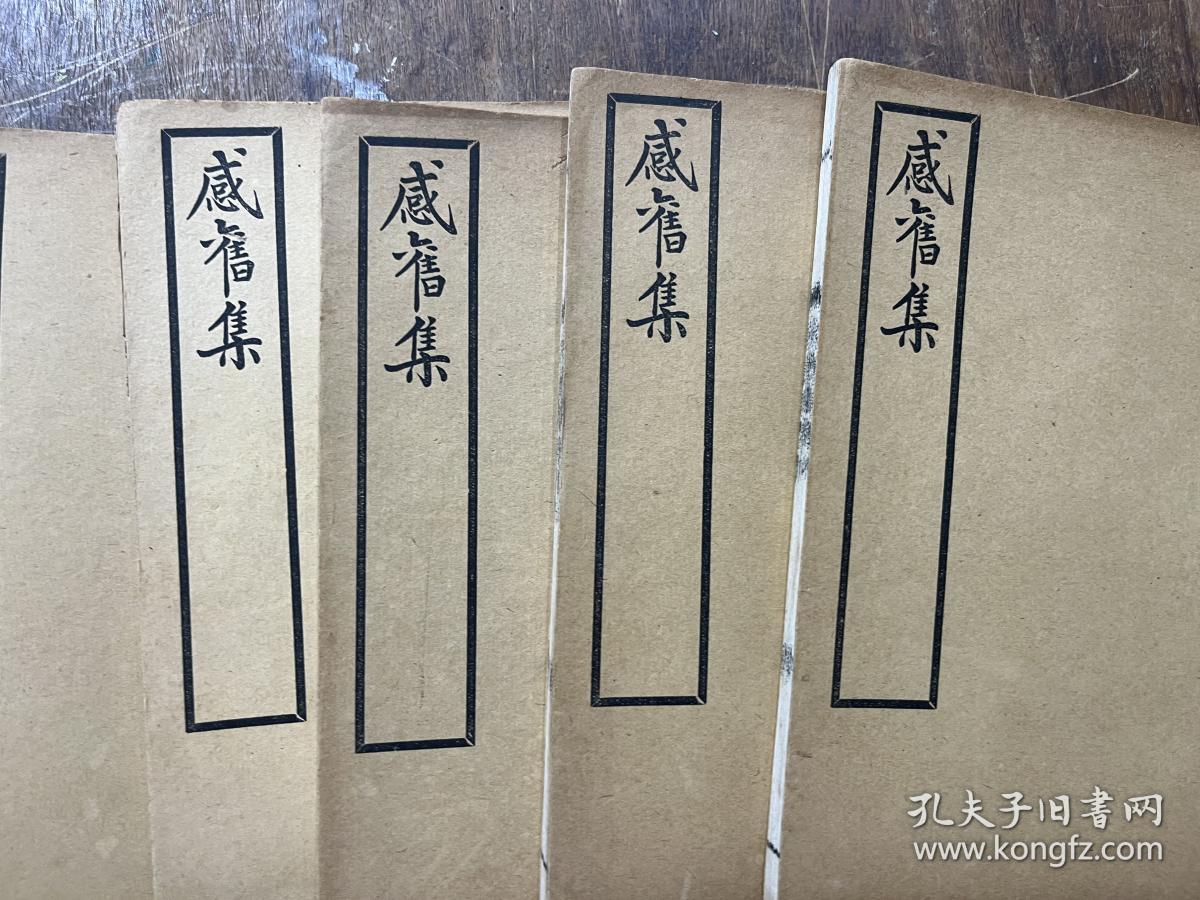 感舊集
感舊集
感舊集
感舊集
孔夫子旧书网
www.kongfz.com